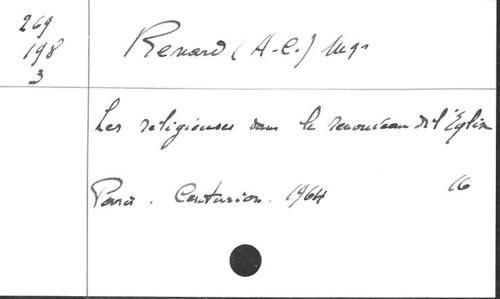 269
198
3
Renard (A-C.) Mgr
Les religieuses dans le renouveau de l'Église
Paris. Centurion. 1964 16